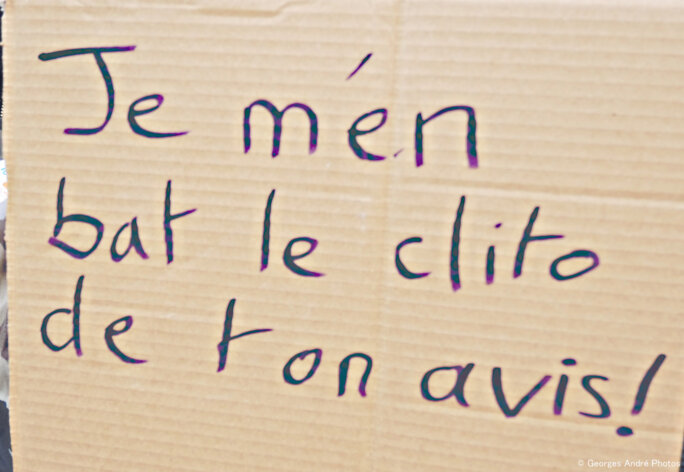 Je m'én
bat le clito
de ton avis!
© Georges André Photos